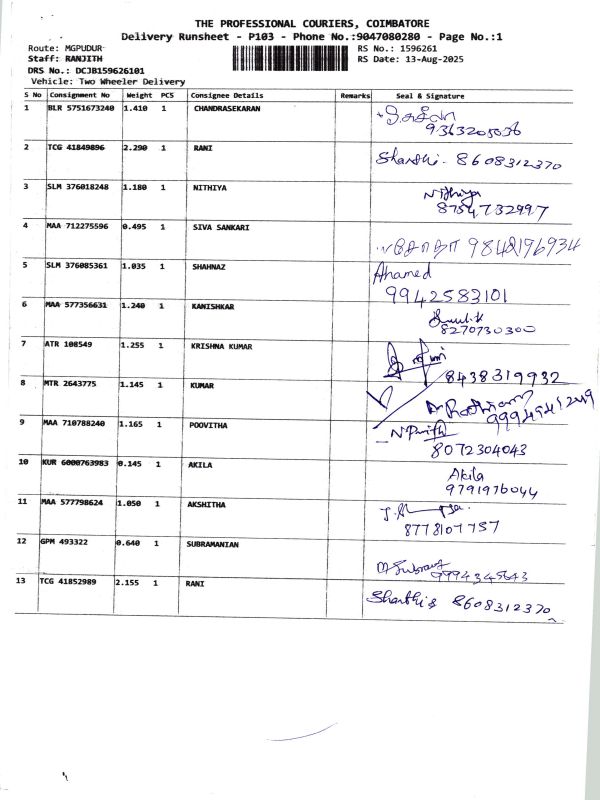 THE PROFESSIONAL COURIERS, COIMBATORE
Delivery Runsheet - P103 - Phone No.:9047080280 - Page No.:1
Route: MGPUDUR RS No.: 1596261
Staff: RANJITH RS Date: 13-Aug-2025
DRS No.: DCJB159626101
Vehicle: Two Wheeler Delivery
S No Consignment No Weight PCS Consignee Details Remarks Seal & Signature
1 BLR 5751673240 1.410 1 CHANDRASEKARAN
9363205036
2 TCG 41849896 2.290 1 RANI Sharthi. 8608312370
3 SLM 376018248 1.180 1 NITHIYA Nithiya
8754732997
4 MAA 712275596 0.495 1 SIVA SANKARI 9842196934
5 SLM 376085361 1.035 1 SHAHNAZ Ahamed
9942583101
6 MAA 577356631 1.240 1 KANISHKAR
8270730300
7 ATR 108549 1.255 1 KRISHNA KUMAR
8438319932
8 MTR 2643775 1.145 1 KUMAR
9 MAA 710788240 1.165 1 POOVITHA
8072304043
10 KUR 6000763983 0.145 1 AKILA Akila
9791976044
11 MAA 577798624 1.050 1 AKSHITHA
8778107757
12 GPM 493322 0.640 1 SUBRAMANIAN
9994345643
13 TCG 41852989 2.155 1 RANI 8608312370